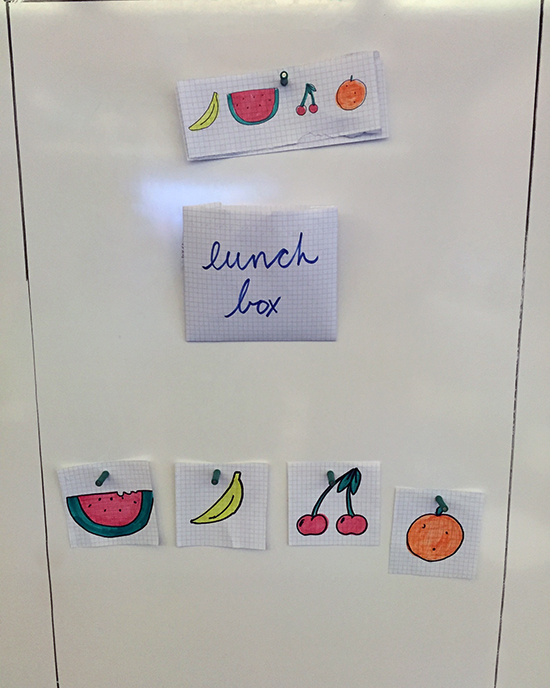 lunch
box